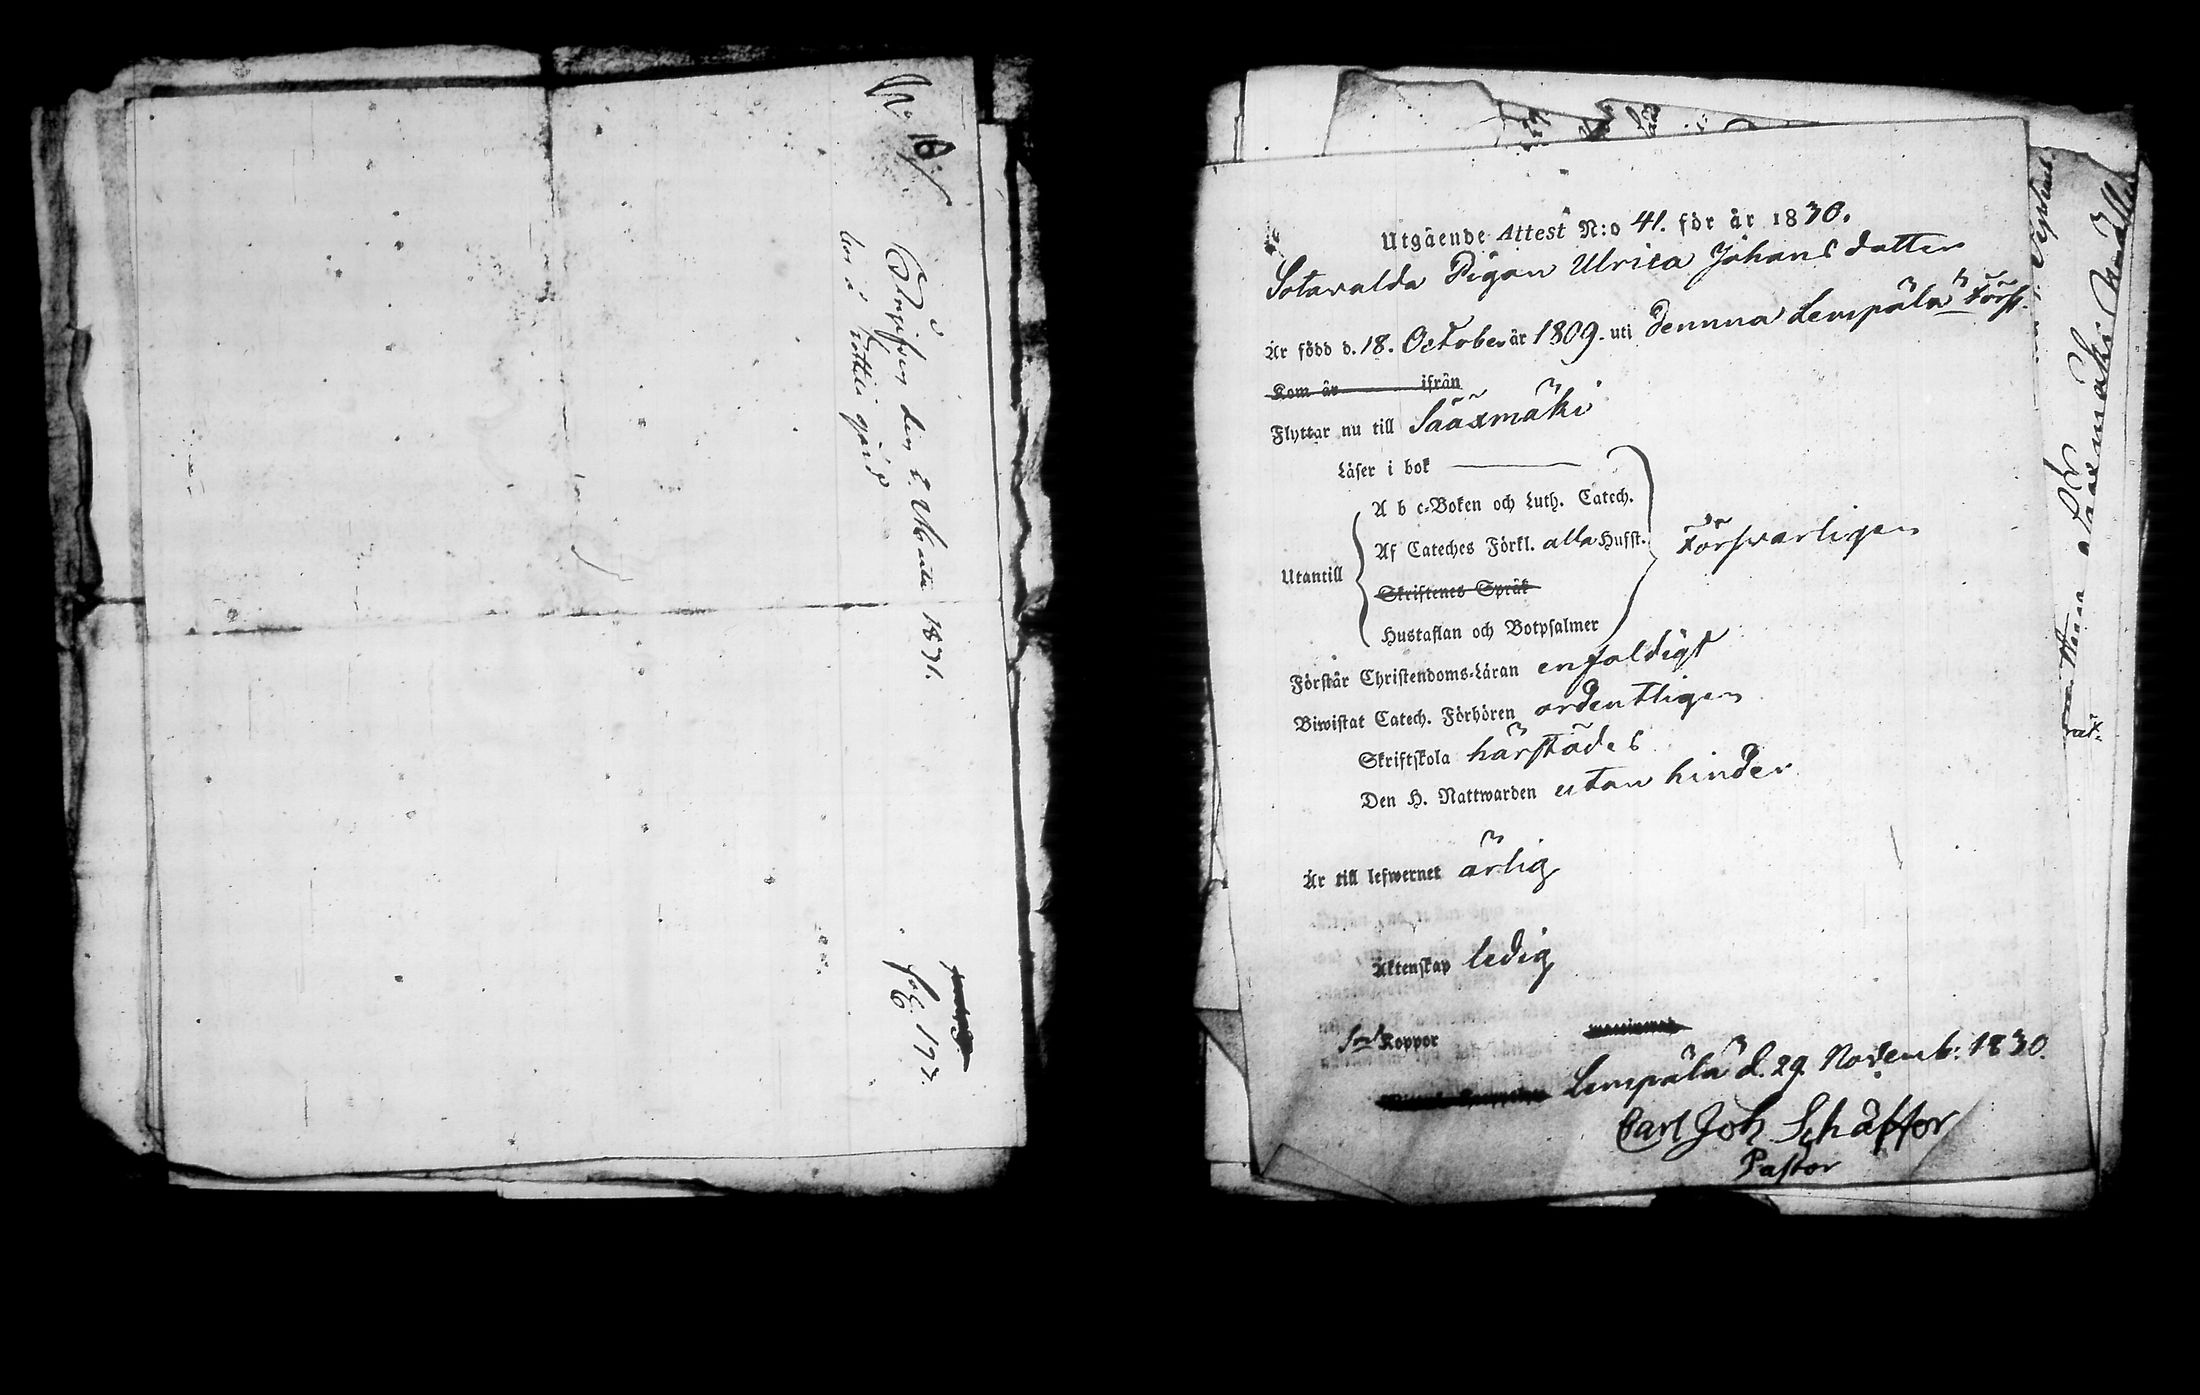 N:o 16/
den 2 Martii 1831.
gård
fol. 193.
Utgående Attest N:o 41. för år 1830.
Sotavalda Pigan Ulrica Johansdotter
Är född d. 18. October år 1809. uti denna Lempälä Förs.
Kom år ifrån
Flyttar nu till Sääxmäki
Läser i bok
A b c-Boken och Luth. Catech.
Af Cateches Förkl. alla Hufst. Försvarligen
Utantill
Skriftenes Språk
Hustaflan och Botpsalmer
Förstår Christendoms-Läran enfaldigt
Biwistat Catech. Förhören ordentligen
Skriftskola härstädes
Den H. Nattwarden utan hinder
Är till lefwernet ärlig
Äktenskap ledig
Koppor
Lempälä d. 29. Novemb: 1830.
Carl Joh Schäffer
Pastor